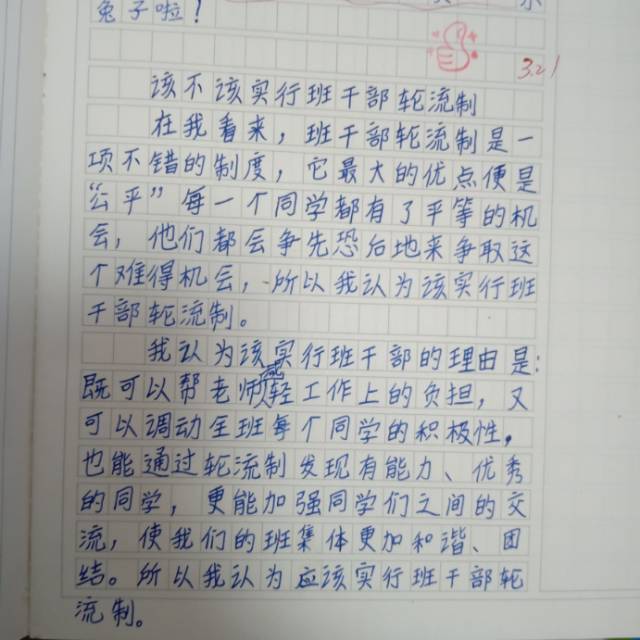 兔子啦！
3.21
该不该实行班干部轮流制
在我看来，班干部轮流制是一
项不错的制度，它最大的优点便是
“公平”每一个同学都有了平等的机
会，他们都会争先恐后地来争取这
个难得机会，所以我认为该实行班
干部轮流制。
我认为该实行班干部的理由是：
既可以帮老师减轻工作上的负担，又
可以调动全班每个同学的积极性，
也能通过轮流制发现有能力、优秀
的同学，更能加强同学们之间的交
流，使我们的班集体更加和谐、团
结。所以我认为应该实行班干部轮
流制。